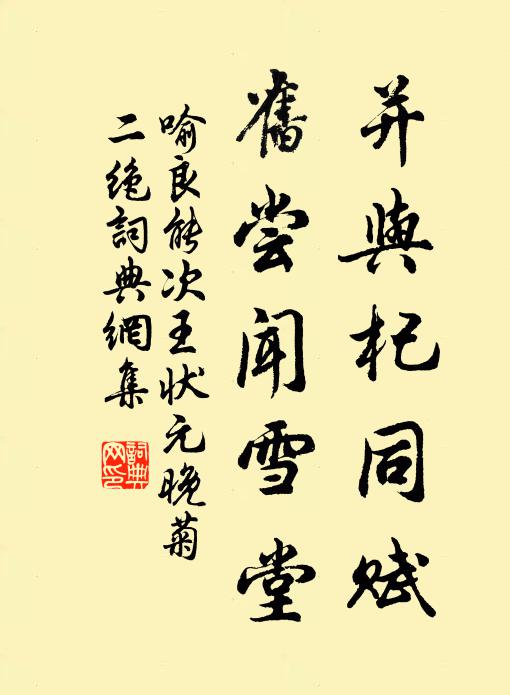 并與杞同賦
舊尝闻雪堂
喻良能次王状元晚菊
二绝詞典網集
詞典
网印